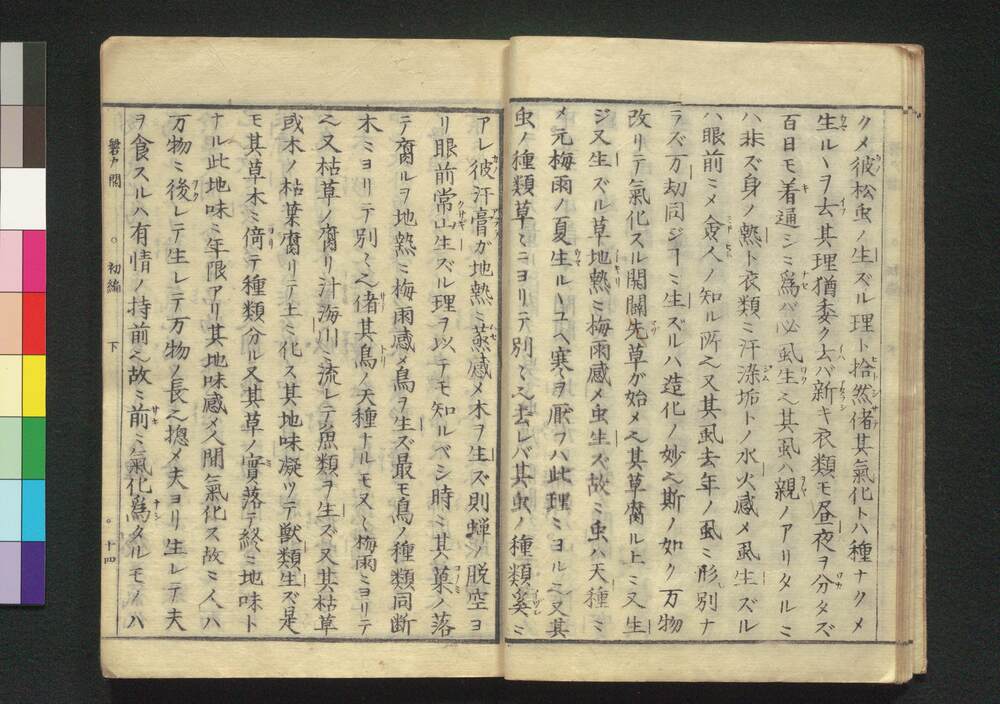 クメ彼松虫ノ生ズル理ト拾然偖其氣化トハ種ナクメ
生ルヽヲ去其理猶委ク去バ新キ衣類モ昼夜ヲ分タズ
百日モ着通シミ爲バ必虱生ヘ其虱ハ親ノアリタルミ
ハ非ズ身ノ熱ト衣類ミ汗染垢トノ水火感メ虱生ズル
ハ眼前ミメ僉人ノ知ル所ヘ又其虱去年ノ虱ミ形別ナ
ラズ万劫同ジヿミ生ズルハ造化ノ妙ヘ斯ノ如ク万物
改リテ氣化スル開闢先草が始メヘ其草腐ル上ミ又生
ジ又生ズル草地熱ミ梅雨感メ虫生ズ故ミ虫ハ天種ミ
メ元梅雨ノ夏生ルヽユヘ寒ヲ厭フハ此理ミヨルヘ又其
虫ノ種類草ミニヨリテ別ミヘ去レバ其虫ノ種類奚ミ
アレ彼汗膏ガ地熱ミ蒸感メ木ヲ生ズ則蝉ノ脱空ヨ
リ眼前常山生ズル理ヲ以テモ知ルベシ時ミ其菓ノ落
テ腐ルヲ地熱ミ梅雨感メ鳥ヲ生ズ最モ鳥ノ種類同断
木ミヨリテ別ミヘ偖其鳥ノ天種ナルモ又ミ梅雨ミヨリテ
ヘ又枯草ノ腐リ汁海川ミ流レテ魚類ヲ生ズ又其枯草
或木ノ枯葉腐リテ上ミ化ス其地味凝ツテ獣類生ズ是
モ其草木ミ倚テ種類分ル又其草ノ實落テ終ミ地味ト
ナル此地味ミ年限アリ其地味感メ人間氣化ス故ミ人ハ
万物ミ後レテ生レテ万物ノ長ヘ揔メ夫ヨリ生レテ夫
ヲ食スルハ有情ノ持前ヘ故ミ前ミ氣化爲タルモノハ
磐戸開 ○初編 下 ○十四